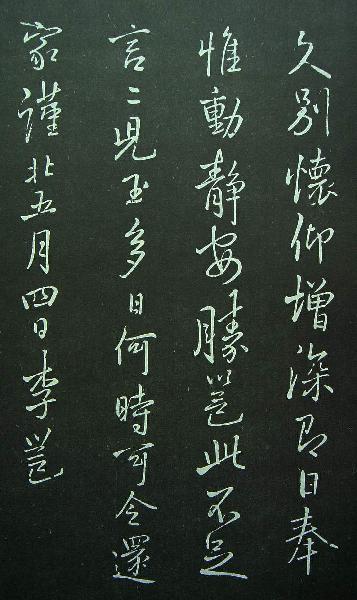 久別懷仰增深即日奉
惟動静安勝邕此不足
言二兒至多日何時可令還
家謹五月四日李邕